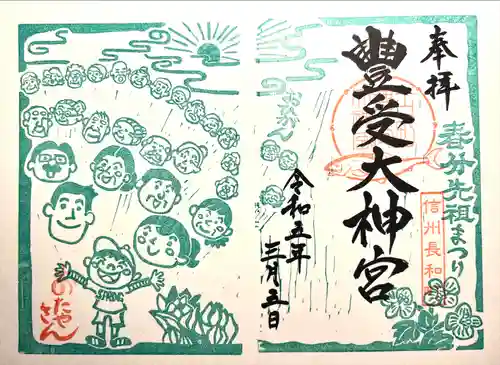 奉拝
豊受大神宮
春分先祖まつり
信州長和
おかん
令和五年
三月五日
おたやさん
SPRING